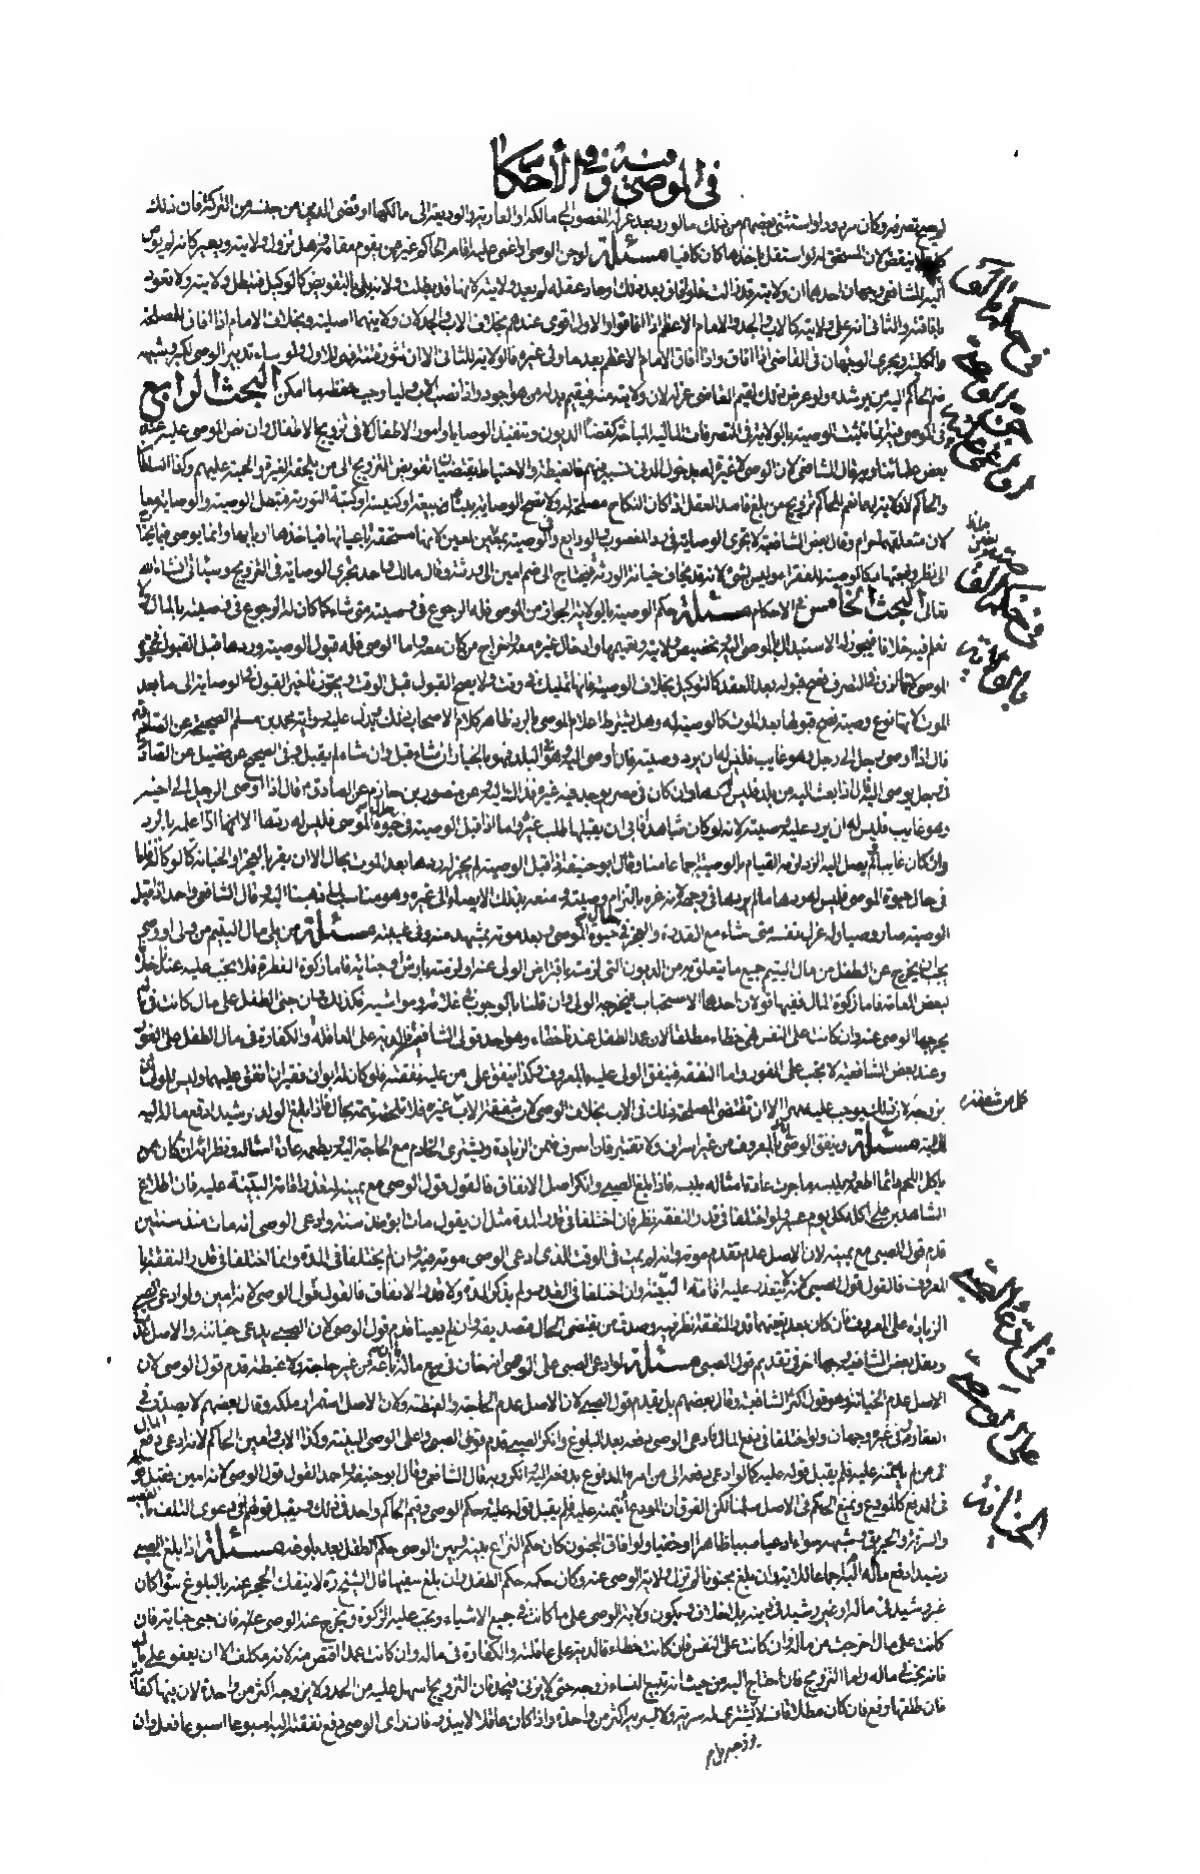 في الموصى فيه وفي الأحكام
لم يصح تصرفه وكان مردودا واستثنى بعضهم من ذلك ما لو رد بعد عزله الغصوب الى مالكها والعارية والوديعة الى مالكها او قضى الدين من جنسه من التركة فان ذلك
لا ينقض لان المستحق له لو استقل باخذها كان كافيا مسئلة لو جن الوصي او اغمى عليه اقام الحاكم غيره من يقوم مقامه وهل تزول ولايته
للشافعي وجهان احدهما ان ولايته قد زالت فلو افاق بعد ذلك او عاد عقله لم يعد ولايته لانها قد بطلت ولانه يلي بالتفويض كالوكيل فتبطل ولايته ولا تعود
بافاقته والثاني انه على ولايته كالاب والجد والامام الاعظم اذا افاقوا والاول اقوى عندهم بخلاف الاب والجد لان ولايتهما اصلية وبخلاف الامام اذا افاق للمصلحة
الكلية ويجري الوجهان في القاضي اذا افاق واذا افاق الامام الاعظم بعد ما ولي غيره فالولاية للثاني الا ان تثور فتنة فهي للاول ولو ساء تدبير الوصي لكبر وشبهه
ضم الحاكم اليه من يرشده ولو عرض ذلك لقيم القاضي عزله لان ولايته منه فيقيم بدله من هو اجود واذا نصب الاب وليا وجب حفظهما ما امكن البحث الرابع
في الموصى فيه انما تثبت الوصية بالولاية في التصرفات المالية المباحة كقضاء الديون وتنفيذ الوصايا وامور الاطفال لا في تزويج الاطفال وان نص الموصي عليه عند
بعض علمائنا وبه قال الشافعي لان الوصي لا غيرة له بدخول الدني في نسبهم فالغبطة والاحتياط يقتضيان تفويض التزويج الى من يلحقه الغيرة والحمية عليهم وكذا السلطان
والحاكم لا ولاية لهما نعم للحاكم تزويج من بلغ فاسد العقل اذا كان النكاح مصلحة له ولا تصح الوصاية ببناء بيعة او كنيسة او كتبة التورية فتبطل الوصية والوصاية معا
لان متعلقهما حرام وقال بعض الشافعية لا تجري الوصاية في رد الغصوب والودايع ولا في الوصية بمعين لمعين لانها مستحقة باعيانها فياخذها اربابها وانما يوصى فيما يحتاج
الى نظر واجتهاد كالوصية للفقراء وليس بشيء لانه قد يخاف خيانة الورثة فيحتاج الى ضم امين الى ورثته وقال مالك واحمد يجري الوصاية في التزويج وسيأتي انشاء الله
تعالى البحث الخامس في الاحكام مسئلة حكم الوصية بالولاية الجواز من الموصي فله الرجوع في وصيته متى شاء كما كان له الرجوع في وصيته بالمال ولا
نعلم فيه خلافا فيجوز له الاستبدال بالموصى اليه وتخصيص ولايته وتعميمها وادخال غيره معه واخراج من كان معه واما الوصي فله قبول الوصية وردها قبل القبول في حيوة
الموصي لانها اذن في التصرف فصح قبوله بعد العقد كالتوكيل بخلاف الوصية له فانها تمليك في وقت ولا يصح القبول قبل الوقت ويجوز تاخير القبول في الوصاية الى ما بعد
الموت لانها نوع وصية فصح قبولها بعد الموت كالوصية له وهل يشترط اعلام الموصي بالرد ظاهر كلام الاصحاب ذلك يدل عليه رواية محمد بن مسلم الصحيحة عن الصادق
قال اذا اوصى رجل الى رجل وهو غايب فليس له ان يرد وصيته فان اوصى اليه وهو في البلد فهو بالخيار ان شاء قبل وان شاء لم يقبل وفي الصحيح عن فضيل عن الصادق
في رجل يوصى اليه قال اذا بعث اليه من بلد فليس له ردها وان كان في مصر يوجد فيه غيره فذاك اليه وعن منصور بن حازم عن الصادق قال اذا اوصى الرجل الى اخيه
وهو غايب فليس له ان يرد عليه وصيته لانه لو كان شاهدا فابى ان يقبلها طلب غيره واما اذا قبل الوصية في حيوة الموصي فليس له ردها الا اذا علم بالرد
وان كان غايبا لم يصل اليه الرد لزمه القيام بالوصية اجماعا منا وقال ابو حنيفة اذا قبل الوصية لم يجز له ردها بعد الموت بحال الا ان يقر بالعجز او الخيانة كالوكالة فاما
في حال حيوة الموصي فليس له ردها ما لم يردها في وجهه لانه غره بالتزام وصيته ومنعه بذلك الايصاء الى غيره وهو مناسب لما ذهبنا اليه وقال الشافعي واحمد اذا قبل
الوصية صار وصيا وله عزل نفسه متى شاء مع القدرة والعجز في حال حيوة الموصي وبعد موته بمشهد منه وفي غيبته مسئلة من يلي مال اليتيم من ولي او وصي
يجب ان يخرج عن الطفل من مال اليتيم جميع ما يتعلق به من الديون التي لزمته باقتراض الولي عنه او لزمته بارش جناية فاما زكوة الفطرة فلا تجب عليه عندنا خلافا
لبعض العامة فاما زكوة المال ففيها قولان احدهما الاستحباب فيخرجه الولي وان قلنا بالوجوب في غلاته ومواشيه فكذلك فان جنى الطفل على مال كانت في ماله
يخرجها الوصي عنه وان كانت على النفس فهي خطاء مطلقا لان عمد الطفل عندنا خطاء وهو احد قولي الشافعي فالدية على العاقلة والكفارة في مال الطفل على الفور
وعند بعض الشافعية لا يجب على الفور واما النفقة فينفق الولي عليه بالمعروف وكذا ينفق على من عليه نفقته فلو كان له ابوان فقيران انفق عليهما وليس للولي ان
يزوجه لان ذلك يوجب عليه مهرا الا ان تقتضي المصلحة ذلك في الاب بخلاف الوصي لان شفقة الاب غيره فلا تلحقه تهمة بحال فاذا بلغ الولد رشيدا دفع ماله اليه
مسئلة وينفق الوصي بالمعروف من غير اسراف ولا تقتير فان اسرف ضمن الزيادة ويشتري الخادم مع الحاجة اليه ويطعمه عادة امثاله ونظرائه ان كان ممن
ياكل اللحم دائما اطعمه ويلبسه ما جرت عادة امثاله بلبسه فاذا بلغ الصبي وانكر اصل الانفاق فالقول قول الوصي مع يمينه لتعذر اقامة البينة عليه فان اطلاع
الشاهدين على اكله كل يوم عسر ولو اختلفا في قدر النفقة نظر فان اختلفا في قدر المدة مثل ان يقول مات ابوك منذ سنة وادعى الوصي انه مات منذ سنتين
قدم قول الصبي مع يمينه لان الاصل عدم تقدم موته وانه لم يمت في الوقت الذي ادعى الوصي موته فيه وان لم يختلفا في المدة وانما اختلفا في قدر النفقة
بالمعروف فالقول قول الصبي لانه لا يتعذر عليه اقامة البينة وان اختلفا في القدر ولم يذكر المدة ولا قدر الانفاق فالقول قول الوصي لانه امين ولو ادعى الصبي
الزيادة على المعروف فان كان بعد تعيينهما قدر النفقة نظر فيه وصدق من يقتضي الحال تصديقه وان لم يعينا قدم قول الوصي لان الصبي يدعي خيانته والاصل عدمها
ونقل بعض الشافعية وجها اخر في تقديم قول الصبي مسئلة لو ادعى الصبي على الوصي انه خان في بيع ماله وانه باعه من غير حاجة ولا غبطة قدم قول الوصي لان
الاصل عدم الخيانة وهو قول اكثر الشافعية وقال بعضهم بل يقدم قول الصبي لان الاصل عدم الحاجة والغبطة ولان الاصل استمرار ملكه وقال بعضهم لا يصدق في
العقار وفي غيره وجهان ولو اختلفا في دفع المال فادعى الوصي دفعه بعد البلوغ وانكر الصبي قدم قول الصبي وعلى الوصي البينة وكذا الاب وامين الحاكم لانه ادعى دفع المال
الى من لم يأتمنه عليه فلم يقبل قوله عليه كما لو ادعى دفعه الى من امره المدفوع بدفعه اليه وانكر وبه قال الشافعي وقال ابو حنيفة واحمد القول قول الوصي لانه امين فقبل قوله
في الدفع كالمودع ونمنع الحكم في الاصل سلمنا لكن الفرق ان المودع ائتمنه عليه فلم يقبل قوله عليه حكم الوصي وقيم الحاكم واحد في ذلك ويقبل قولهم في دعوى التلف بالغصب
والسرقة والحريق وشبهه سواء ادعيا سببا ظاهرا او خفيا ولو افاق المجنون كان حكم النزاع بينه وبين الوصي حكم الطفل بعد بلوغه مسئلة اذا بلغ الصبي
رشيدا دفع ماله اليه اجماعا لقوله وان بلغ مجنونا لم تزل ولاية الوصي عنه وكان حكمه حكم الطفل وان بلغ سفيها قال الشيخ ره لا ينفك الحجر عنه بالبلوغ سواء كان
غير رشيد في ماله او غير رشيد في دينه بلا خلاف ويكون ولاية الوصي على ما كانت في جميع الاشياء ويجب عليه الزكوة ويخرج عنه الوصي عنه فان جنى جناية فان
كانت على مال اخرجت من ماله وان كانت على النفس فان كانت خطاء فالدية على عاقلته والكفارة في ماله وان كانت عمدا اقتص منه لانه مكلف الا ان يعفو على مال
فانه يخرج في ماله واما التزويج فان احتاج اليه من حيث انه يتبع النساء زوجه حتى لا يزني فيحد فان التزويج اسهل عليه من الحد ولا يزوجه اكثر من واحدة لان فيها كفاية
فان طلقها وقع فان كان مطلاقا فانه يشتري له سرية ولا يسريه اكثر من واحدة واذا كان عاقلا لا يبذر فان راى الوصي دفع نفقته اليه اسبوعا اسبوعا فعل وان
في حكم ما لو افاق
جن الوصي
او اغمي عليه
في حكم الوصية
بالولاية
كل من نفقته
في ادعاء الصبي
على الوصي
الخيانة